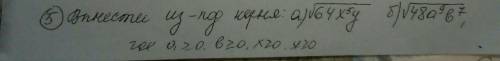 ⑤ Вынести из-под корня: а) √64x⁵y б) √48a⁹b⁷,
где a≥0, b≥0, x≥0, x≥0